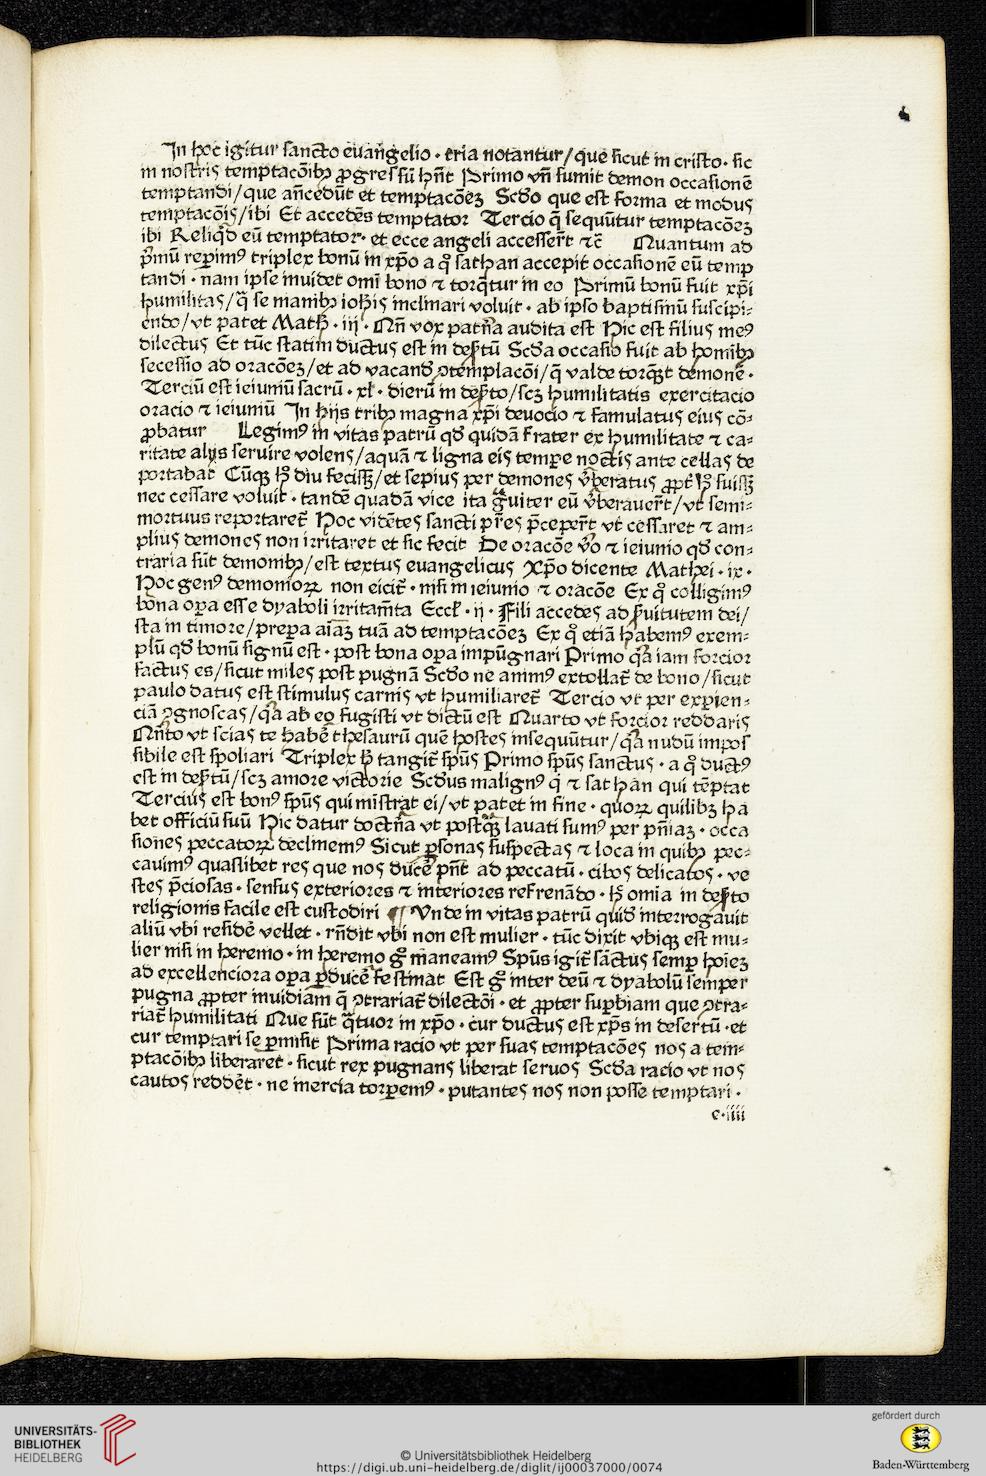 In hoc igitur sancto euāngelio · tria notantur/que sicut in cristo · sic
in nostris temptacōibꝫ ꝓgressū hn̄t Primo vn̄ sumit demon occasionē
temptandi/que an̄cedūt et temptacōeꝫ Scd̓o que est forma et modus
temptacōis/ibi Et accedēs temptator Tercio q̄ sequūtur temptacōeꝫ
ibi Reliqͥd eū temptator· et ecce angeli accesser̄t ⁊c̄ Quantum ad
pͥmū reꝑimꝰ triplex bonū in xp̄o a qͦ sathan accepit occasionē eū temp
tandi · nam ipse inuidet omī bono ⁊ torqͣtur in eo Primū bonū fuit xp̄i
humilitas/qͣ se manibꝫ ioh̄is inclinari voluit · ab ipso baptismū suscipi⸗
endo/vt patet Math̓ · iij · Nn̄ vox patn̄a audita est Hic est filius meꝰ
dilectus Et tūc statim ductus est in deẜtū Scd̓a occasio fuit ab homībꝫ
secessio ad oracōeꝫ/et ad vacand̓ ꝯtemplacōi/q̄ valde torqꝫt demonē ·
Terciū est ieiuniū sacrū · xl̓ · dierū in deẜto/scꝫ humilitatis exercitacio
oracio ⁊ ieiuniū In hijs tribꝫ magna xp̄i deuocio ⁊ famulatus eius cō⸗
ꝓbatur Legimꝰ in vitas patrū qd̓ quidā frater ex humilitate ⁊ ca⸗
ritate alijs seruire volens/aquā ⁊ ligna eis tempe noctis ante cellas de
portabat Cūqꝫ hͦ diu fecissꝫ/et sepius per demones v̓beratus ꝓpt̓ hͦ fuissꝫ
nec cessare voluit · tandē quadā vice ita gͣuiter eū v̓berauer̄t/vt semi⸗
mortuus reportaret̄ Hoc vidētes sancti pr̄es p̄ceper̄t vt cessaret ⁊ am⸗
plius demones non irritaret et sic fecit De oracōe v̓o ⁊ ieiunio qd̓ con⸗
traria sūt demonibꝫ/est textus euangelicus Xp̄o dicente Mathei · ix ·
Hoc genꝰ demonioꝝ non eicit̄ · nisi in ieiunio ⁊ oracōe Ex qͦ colligimꝰ
bona oꝑa esse dyaboli irritam̄ta Eccl̓ · ij · Fili accedes ad ẜuitutem dei/
sta in timore/prepa aīaꝫ tuā ad temptacōeꝫ Ex qͦ etiā habemꝰ exem⸗
plū qd̓ bonū signū est · post bona oꝑa impūgnari Primo qͥa iam forcior
factus es/sicut miles post pugnā Scd̓o ne animꝰ extollat̄ de bono/sicut
paulo datus est stimulus carnis vt humiliaret̄ Tercio vt per exꝑien⸗
ciā ꝯgnoscas/qͥa ab eo fugisti vt dictū est Quarto vt forcior reddaris
Qn̄to vt scias te habē thesaurū quē hostes insequūtur/qͥa nudū impos
sibile est spoliari Triplex h̓ tangit̄ spūs Primo spūs sanctus · a qͦ ductꝰ
est in deẜtū/scꝫ amore victorie Scd̓us malignꝰ qͥ ⁊ sathan qui tēptat
Tercius est bonꝰ spūs qui mīstrat ei/vt patet in fine · quoꝝ quilibꝫ ha
bet officiū suū Hic datur doctn̄a vt postqͣꝫ lauati sumꝰ per pn̄iaꝫ · occa
siones peccatoꝝ declinemꝰ Sicut ꝑsonas suspectas ⁊ loca in quibꝫ pec⸗
cauimꝰ quaslibet res que nos ducē pn̄t ad peccatū · cibos delicatos · ve
stes p̄ciosas · sensus exteriores ⁊ interiores refrenādo · hͦ omīa in deẜto
religionis facile est custodiri ¶ Vnde in vitas patrū quid̓ interrogauit
aliū vbi residē vellet · rn̄dit vbi non est mulier · tūc dixit vbiqꝫ est mu⸗
lier nisi in heremo · in heremo gͦ maneamꝰ Spūs igit̄ sāctus semꝑ hoīeꝫ
ad excellenciora oꝑa ꝓducē festinat Est gͦ inter deū ⁊ dyabolū semper
pugna ꝓpter inuidiam q̄ ꝯtrariat̄ dilectōi · et ꝓpter suꝑbiam que ꝯtra⸗
riat̄ humilitati Que sūt qͣtuor in xp̄o · cur ductus est xp̄s in desertū · et
cur temptari se ꝑmisit Prima racio vt per suas temptacōes nos a tem⸗
ptacōibꝫ liberaret · sicut rex pugnans liberat seruos Scd̓a racio vt nos
cautos reddēt · ne inercia torꝑemꝰ · putantes nos non posse temptari ·
e · iiii
UNIVERSITÄTS-
BIBLIOTHEK
HEIDELBERG
© Universitätsbibliothek Heidelberg
https://digi.ub.uni-heidelberg.de/diglit/ij00037000/0074
gefördert durch
Baden-Württemberg